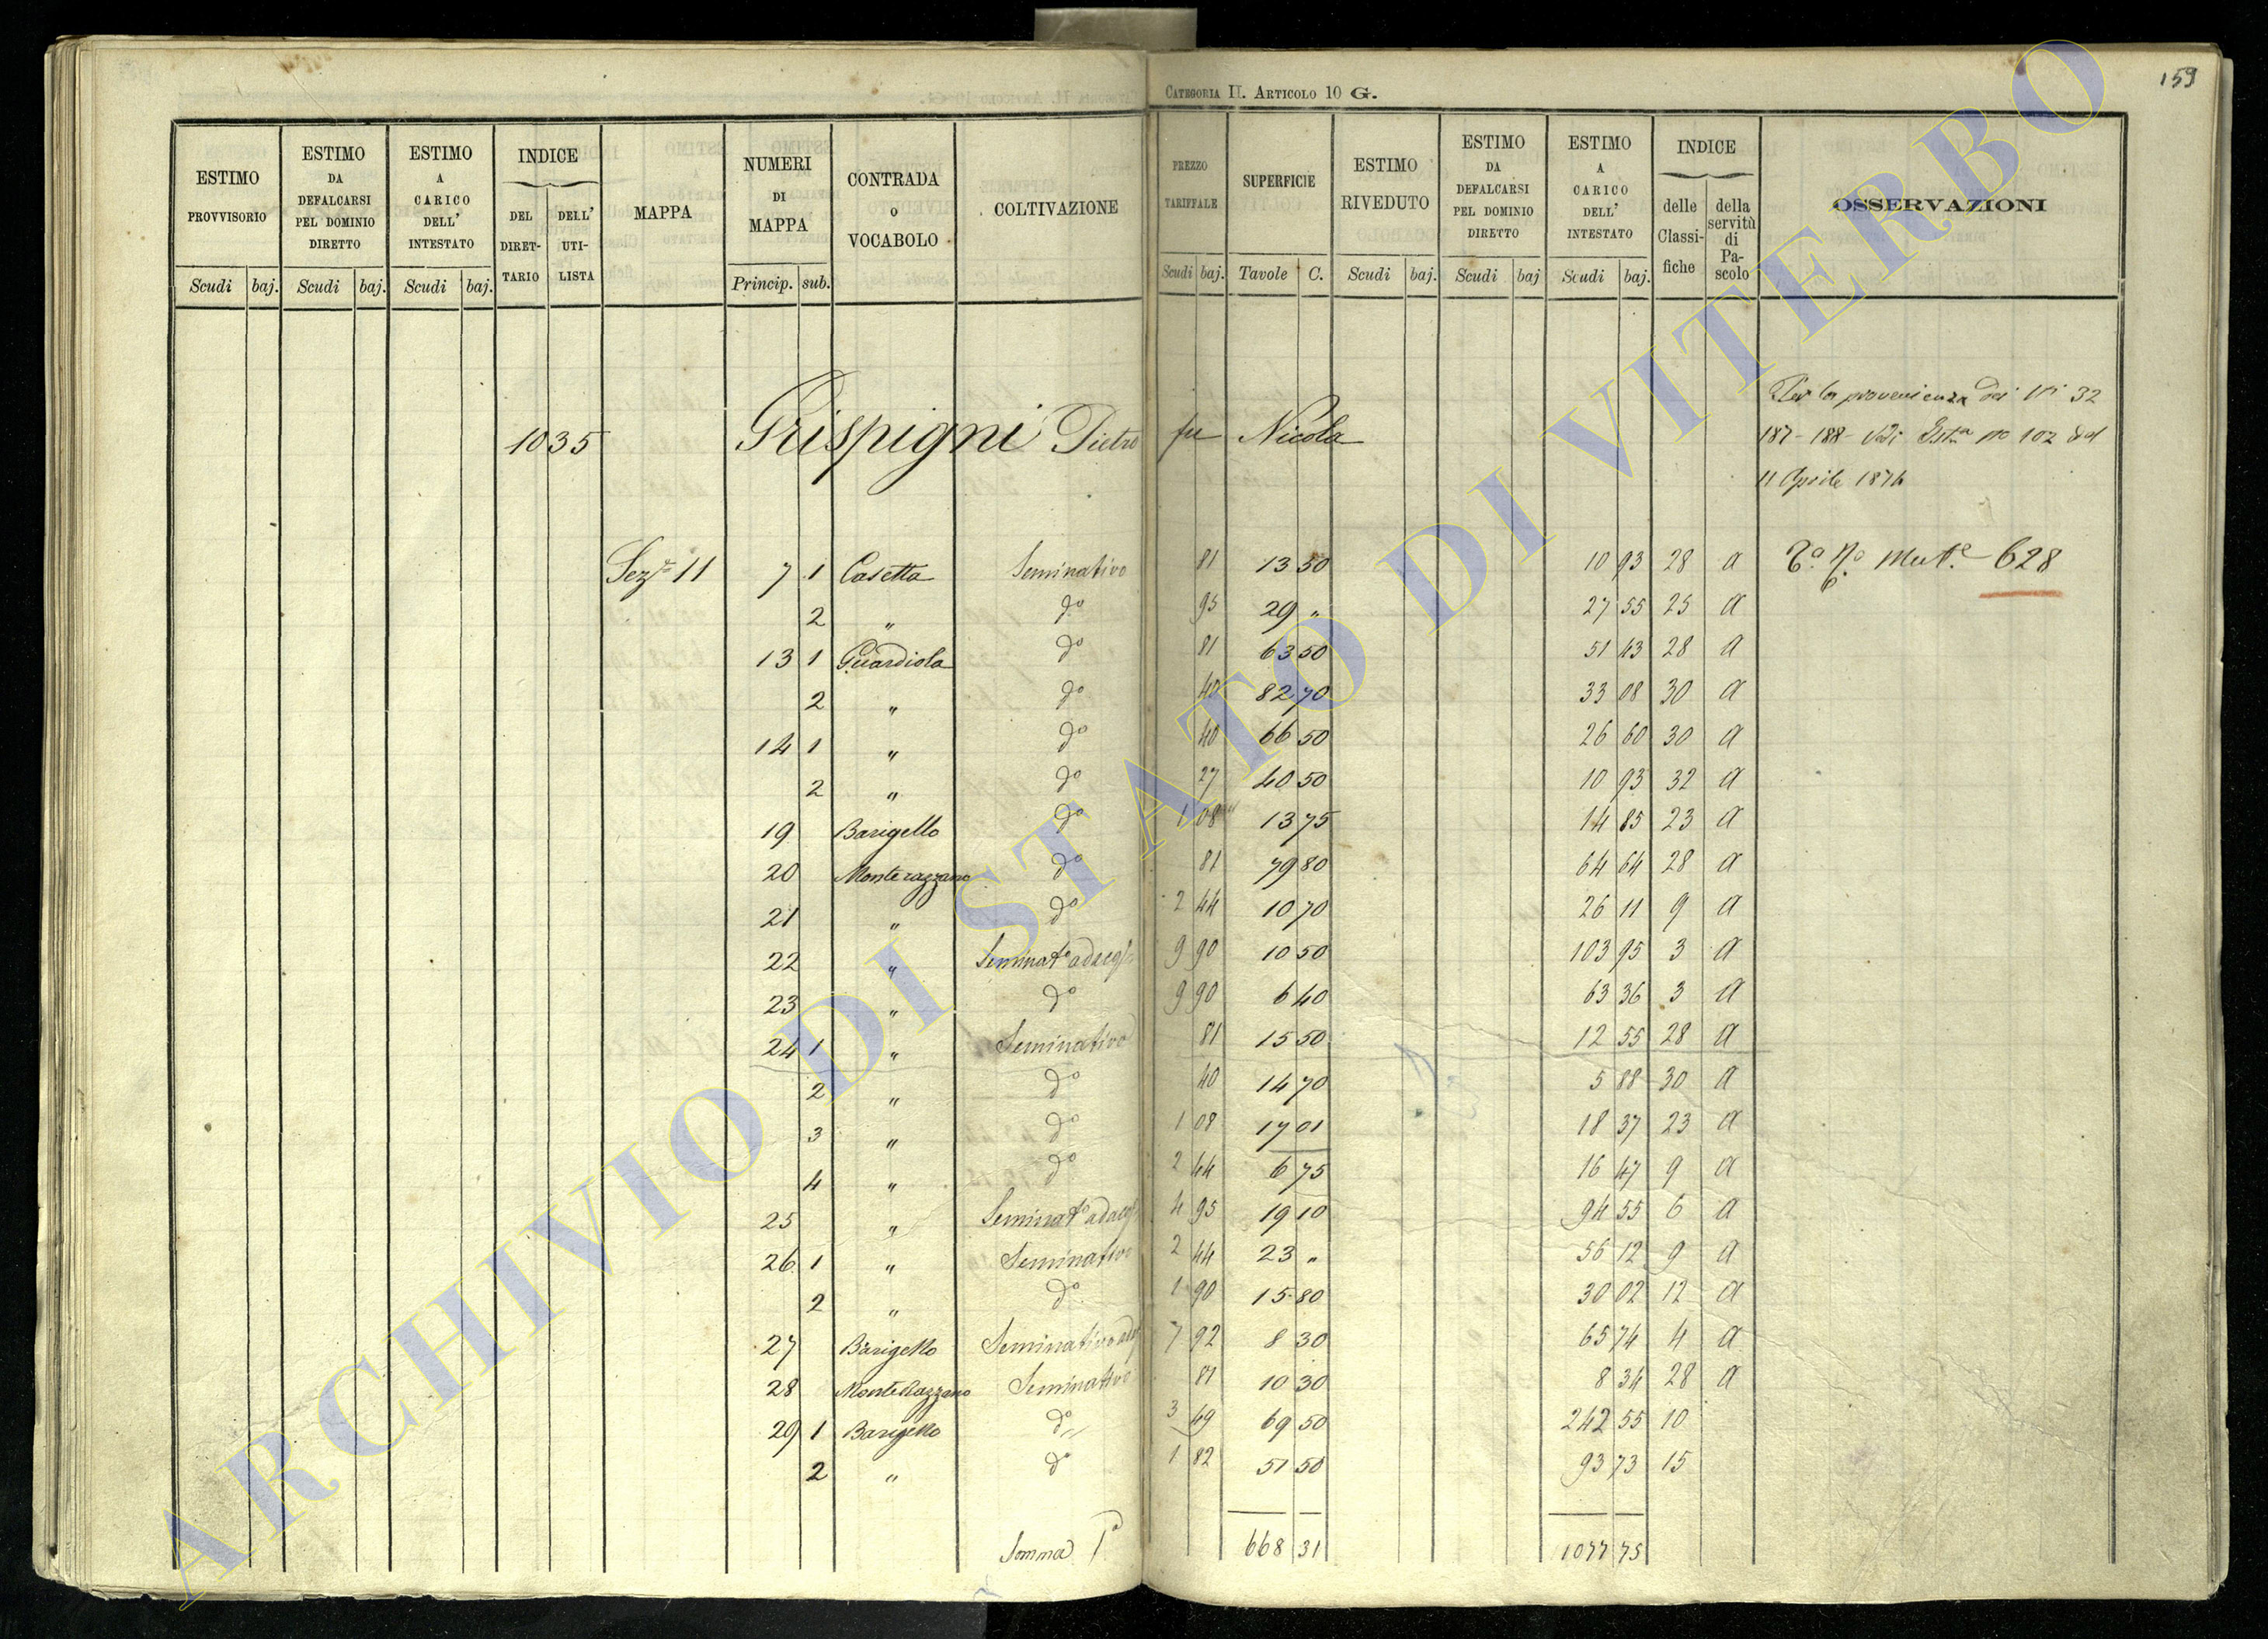 159
CATEGORIA II. ARTICOLO 10 G.
ESTIMO PROVVISORIO | ESTIMO DA DEFALCARSI PEL DOMINIO DIRETTO | ESTIMO A CARICO DELL' INTESTATO | INDICE DEL DIRET-TARIO | DELL' UTI-LISTA | MAPPA | NUMERI DI MAPPA | CONTRADA O VOCABOLO | COLTIVAZIONE | PREZZO TARIFFALE | SUPERFICIE | ESTIMO RIVEDUTO | ESTIMO DA DEFALCARSI PEL DOMINIO DIRETTO | ESTIMO A CARICO DELL' INTESTATO | INDICE delle Classi-fiche | della servitù di Pa-scolo | OSSERVAZIONI
Scudi baj. Scudi baj. Scudi baj. Princip. sub. Scudi baj. Tavole C. Scudi baj. Scudi baj Scudi baj.
Per la provenienza dei Ni 32
1035 Grispigni Pietro fu Nicola
187 - 188 - Vedi Ista no 102 del
11 Aprile 1874
Sezne 11 7 1 Casetta Seminativo 81 13 50 10 93 28 a Ta Po Mut.e 628
2 " do 95 29 " 27 55 25 a
13 1 Guardiola do 81 63 50 51 43 28 a
2 " do 40 82 70 33 08 30 a
14 1 " do 40 66 50 26 60 30 a
2 " do 27 40 50 10 93 32 a
19 Barigello do 1 08 13 75 14 85 23 a
20 Monterazzano do 81 79 80 64 64 28 a
21 " do 2 44 10 70 26 11 9 a
22 " Seminato adacq 9 90 10 50 103 95 3 a
23 " do 9 90 6 40 63 36 3 a
24 1 " Seminativo 81 15 50 12 55 28 a
2 " do 40 14 70 5 88 30 a
3 " do 1 08 17 01 18 37 23 a
4 " do 2 44 6 75 16 47 9 a
25 " Seminato adacq 4 95 19 10 94 55 6 a
26 1 " Seminativo 2 44 23 " 56 12 9 a
2 " do 1 90 15 80 30 02 12 a
27 Barigello Seminativo adq 7 92 8 30 65 74 4 a
28 Monte Razzano Seminativo 81 10 30 8 34 28 a
29 1 Barigello do 3 49 69 50 242 55 10
2 " do 1 82 51 50 93 73 15
Somma 1a 668 31 1077 75
ARCHIVIO DI STATO DI VITERBO